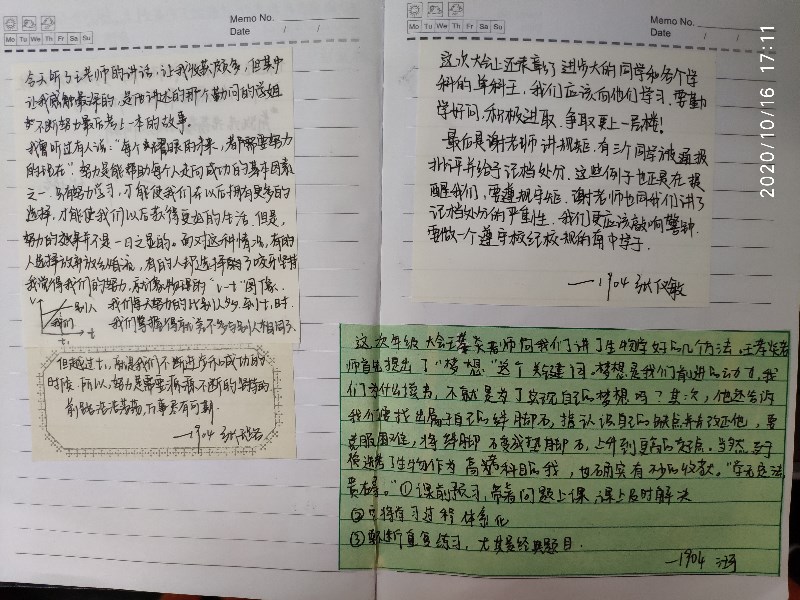 Memo No.
Mo Tu We Th Fr Sa Su
Date / /
今天听了王老师的讲话,让我收获颇多,但其中
让我感触最深的,是所讲述的那个勤问的学姐
不断努力最后考上一本的故事。
我曾听过有人说:“每个耀眼的未来,都需要努力
的现在”努力是能帮助每个人走向成功的基本因素
之一,只有努力学习,才能使我们在以后拥有更多的
选择,才能使我们以后获得更好的生活.但是,
努力的效果并不是一日之显的。面对这种情况,有的
人选择放弃,有的人却选择咬牙坚持
我觉得我们的努力,就像物理的“v-t”图像.
v 别人
我们 t
t₁
我们每天努力的比别人少,到t₁时,
我们 与别人相同了
但越过t₁,就是我们不断进步和成功的
时候.所以,努力是需要循环不断的坚持的
前路浩浩荡荡,万事皆有可期.
—1904 张
Memo No.
Mo Tu We Th Fr Sa Su
Date / /
这次大会上还表彰了进步大的同学和各个学
科的单科王,我们应该向他们学习,要勤
学好问,积极进取,争取更上一层楼!
最后是谢老师讲规矩.有三个同学被通报
批评并给予记档处分.这些例子也正是在提
醒我们,要遵规守矩.谢老师也同我们讲了
记档处分的严重性.我们更应该敲响警钟.
要做一个遵守校纪校规的高中学子.
—1904 张仪敏
这次年级大会王 老师向我们讲了生物学好的几个方法.王 老
师首先提出了“梦想”这个关键词.梦想是我们前进的动力,我
们为什么读书,不就是为了实现自己的梦想吗?其次,他还告诉
我们要找出属于自己的绊脚石,指认识自己的缺点并去改正他,要
克服困难,将绊脚石变成垫脚石,上升到更高的起点.当然,对于
选择了生物作为高考科目的我,也确实有不少的收获.“学无定法
贵在得.”①课前预习,带着问题上课,课上及时解决
②只将复习过程体系化
③不断重复练习,尤其是经典题目.
—1904 汪
2020/10/16 17:11